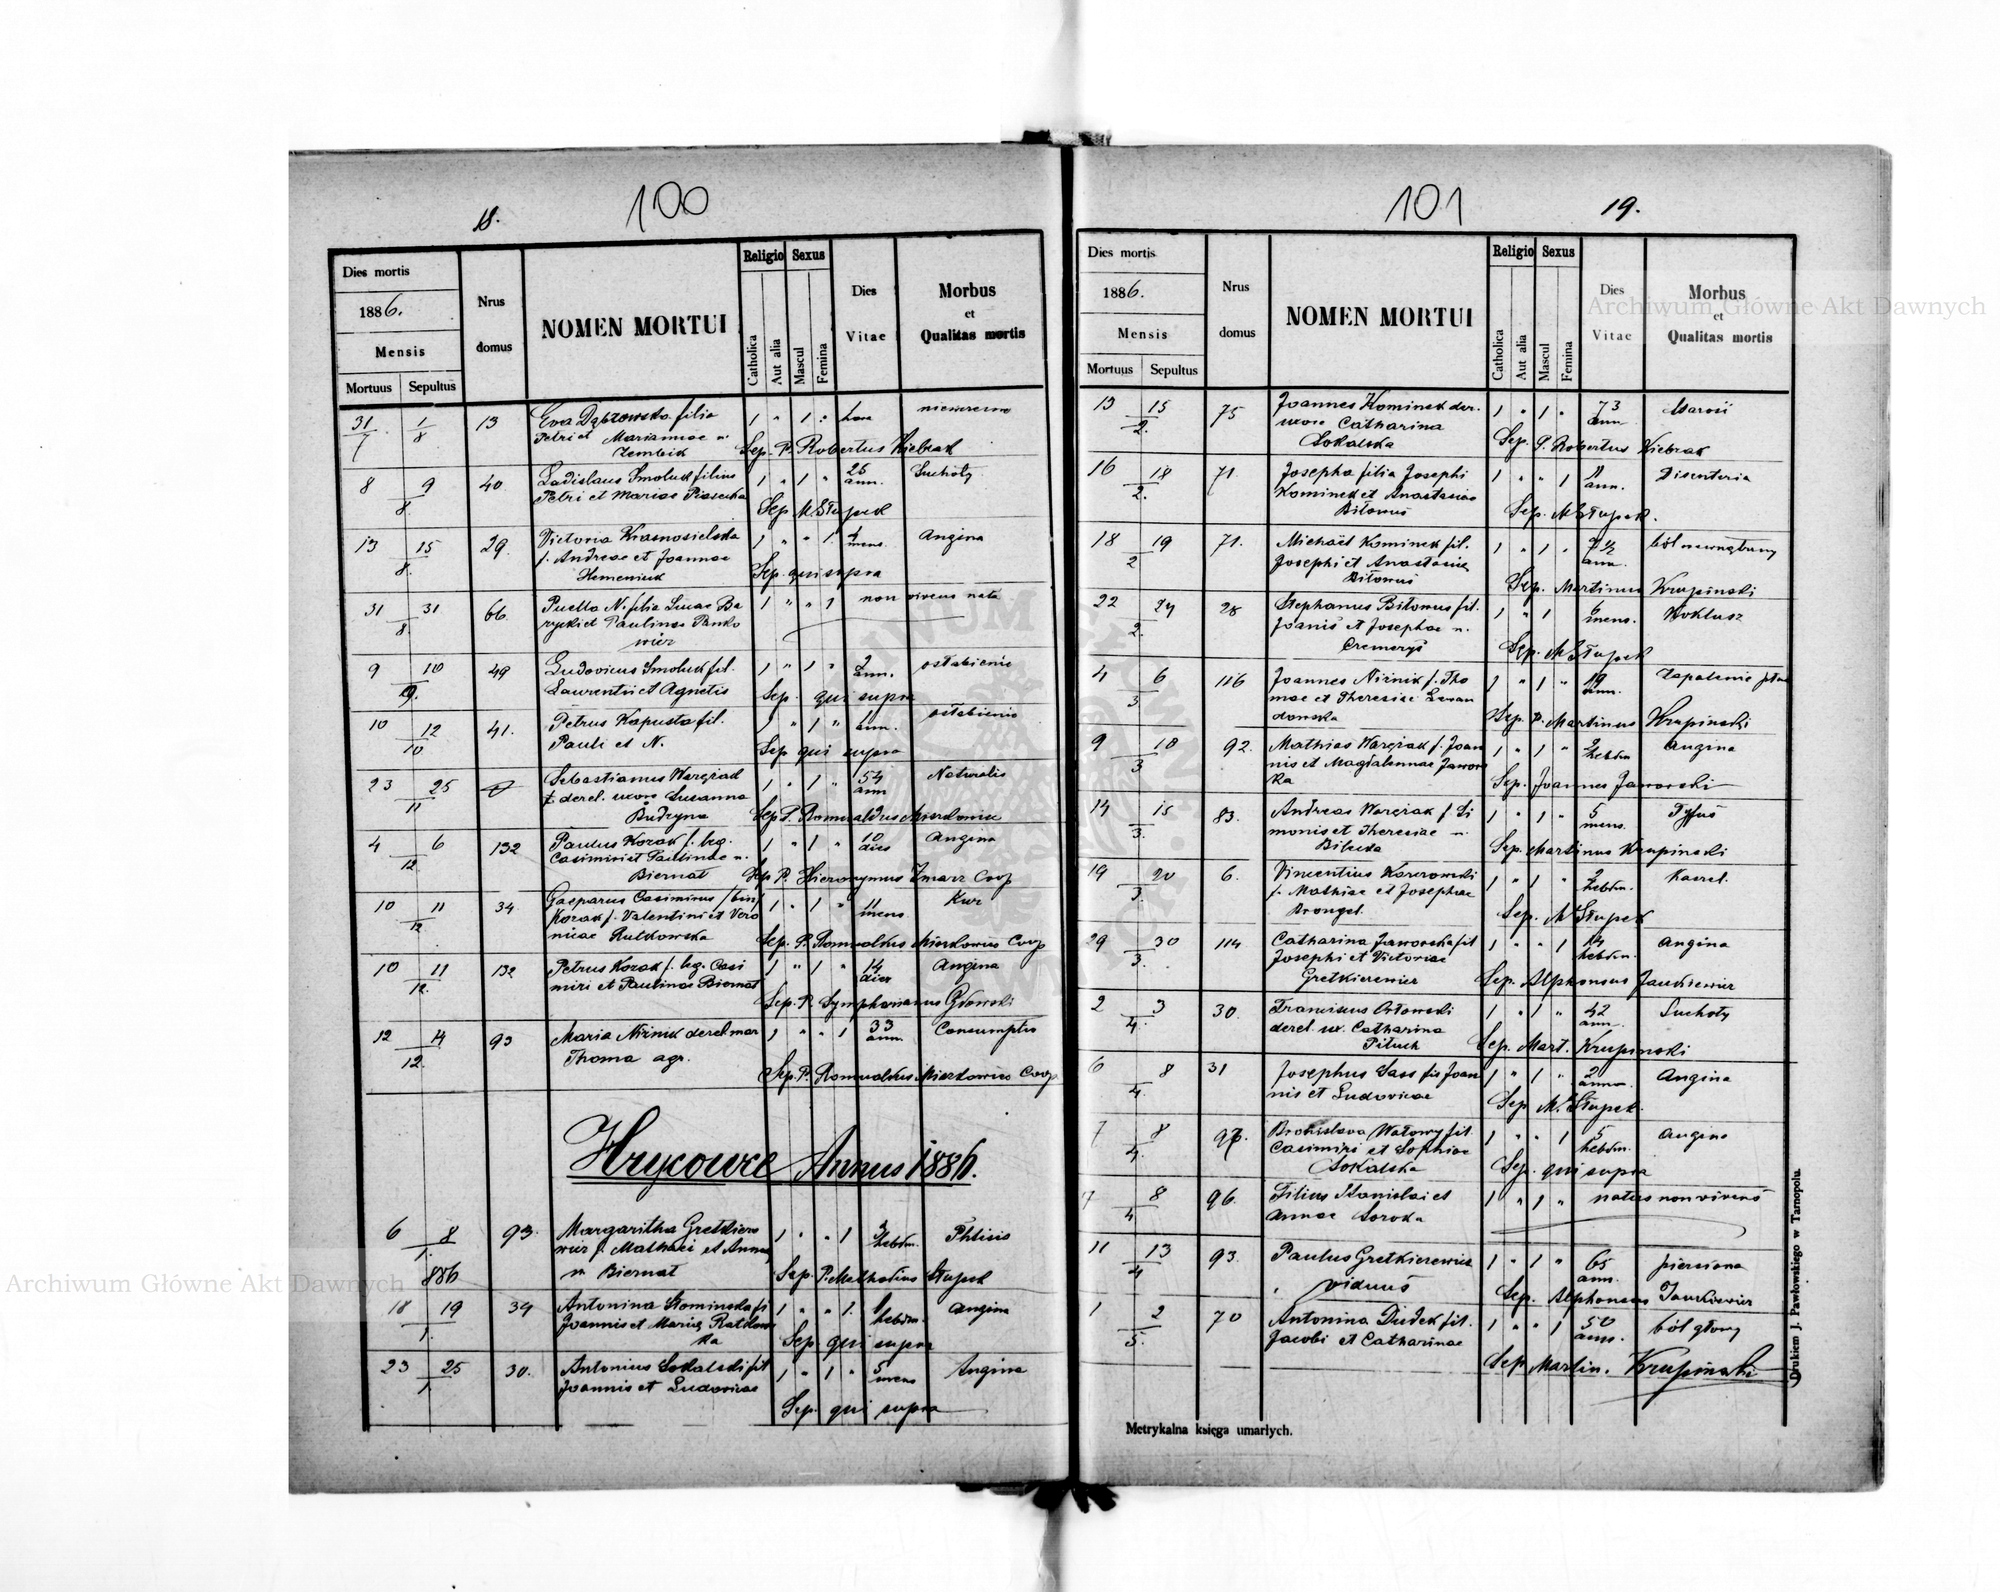 18.
100
Dies mortis
1886.
Mensis
Mortuus Sepultus
Nrus domus
NOMEN MORTUI
Religio
Catholica
Aut alia
Sexus
Mascul
Femina
Dies Vitae
Morbus
et
Qualitas mortis
31/7 1/8 13 Eva Dąbrowska filia 1 " 1 hora
Petri et Mariannae n.
Zembik Sep. P. Robertus Kiebzak
8 9/8 40 Ladislaus Smoluk filius 1 " 1 " 25 ann. Suchoty
Petri et Mariae Piasecka
Sep M Słupek
13 15/8 29. Victoria Krasnosielska 1 " " 1 mens. Angina
f. Andreae et Joannae
Hemeniuk Sep. qui supra
31 31/8 66. Puella N. filia Lucae Ba 1 " " 1 non vivens nata
rycki et Paulinae Panko
wicz
9 10/9. 49 Ludovicus Smoluk fil. 1 " 1 " 2 ann. osłabienie
Laurentii et Agnetis Sep. qui supra
10 12/10 41. Petrus Kapusta fil. 1 " 1 " 1 ann. osłabienie
Pauli et N. Sep qui supra
23 25/11 Sebastianus Wargzak 1 " 1 " 54 ann Naturalis
derel. uxore Susanna
Budzyna Sep P. Romualdus
4 6/12 132 Paulus Kozak f. leg. 1 " 1 " 10 dies Angina
Casimiri et Paulinae n.
Biernat Sep P. Hieronymus Zmarz Coop
10 11/12 34 Gasparus Casimirus /bin/ 1 " 1 " 11 mens Kur
Kozak f. Valentini et Vero
nicae Rutkowska Sep. P. Romualdus Coop
10 11/12. 132 Petrus Kozak f. leg. Casi 1 " 1 " 14 dies Angina
miri et Paulinae Biernat
Sep. P. Symphorianus
12 14/12. 93 Maria Niżnik derel mar 1 " " 1 33 ann. Consumptio
Thoma agr.
Sep. P. Romualdus Coop
Hrycowce Annus 1886.
6 8/1. 886 93. Margaritha Gretkiere 1 " " 1 3 hebdm. Phtisis
wicz f. Mathaei et Annae
n Biernat Sep. P. Methodius Słupek
18 19/1. 34 Antonina Słominska fi 1 " " 1. hebdm. Angina
Joannis et Mariae Rutkow
ska Sep. qui supra
23 25/1. 30. Antonius Sokalski fil 1 " 1 " 5 mens Angina
Joannis et Ludovicae
Sep. qui supra
101
19.
Dies mortis
1886.
Mensis
Mortuus Sepultus
Nrus domus
NOMEN MORTUI
Religio
Catholica
Aut alia
Sexus
Mascul
Femina
Dies Vitae
Morbus
et
Qualitas mortis
13 15/2. 75 Joannes Kominek der. 1 " 1 " 73 ann Starość
uxore Catharina
Sokalska Sep. P. Robertus Kiebzak
16 18/2. 71 Josepha filia Josephi 1 " " 1 ann. Disenteria
Kominek et Anastasiae
Bitowus Sep. M Słupek.
18 19/2 71. Michaël Kominek fil. 1 " 1 " ann. ból wewnętrzny
Josephi et Anastasiae
Bitowus Sep. Martinus Krupinski
22 24/2. 28 Stephanus Bitowus fil. 1 " 1 mens. Kokłusz
Joanis et Josephae n.
Cremerys Sep. M Słupek
4 6/3 116 Joannes Niżnik f. Tho 1 " 1 " 19 ann. Zapalenie płuc
mae et Theresiae Lewan
dowska Sep. P. Martinus Krupinski
9 10/3 92. Mathias Wargzak f. Joan 1 " 1 " 2 hebdm Angina
nis et Magdalennae Jawors
ka Sep. Joannes Jaworski
14 15/3. 83. Andreas Wargzak f. Si 1 " 1 " 5 mens. Tyfus
monis et Theresiae n.
Sep. Martinus Krupinski
19 20/3. 6. Vincentius Korzrowski 1 " 1 " 2 hebdm. Kaszel.
f. Mathiae et Josephae
Brongel. Sep. M Słupek
29 30/3. 114 Catharina Jaworska fil 1 " " 1 14 hebdm. Angina
Josephi et Victoriae
Gretkierewicz Sep. Alphonsus Jankiewicz
2 3/4. 30. Franciscus Orłowski 1 " 1 " 42 ann. Suchoty
derel. ux. Catharina
Pituch Sep. Mart. Krupinski
6 8/4. 31 Josephus Sass fil Joan 1 " 1 " 2 annor. Angina
nis et Ludovicae
Sep M. Słupek.
7 8/4. Bronislava Watowy fil. 1 " " 1 5 hebdm. Angina
Casimiri et Sophiae
Sokalska Sep. qui supra
7 8/4 96. Filius Stanislai et 1 " 1 " natus non vivens
Annae Soroka
11 13/4 93. Paulus Gretkierewicz 1 " 1 " 65 ann. piersiowa
viduus Sep. Alphonsus Jankiewicz
1 2/5. 70 Antonina Dudek fil. 1 " " 1 50 ann. ból głowy
Jacobi et Catharinae
Sep Martin. Krupiński
Metrykalna księga umarłych.
Drukiem J. Pawłowskiego w Tarnopolu.
Archiwum Główne Akt Dawnych
Archiwum Główne Akt Dawnych